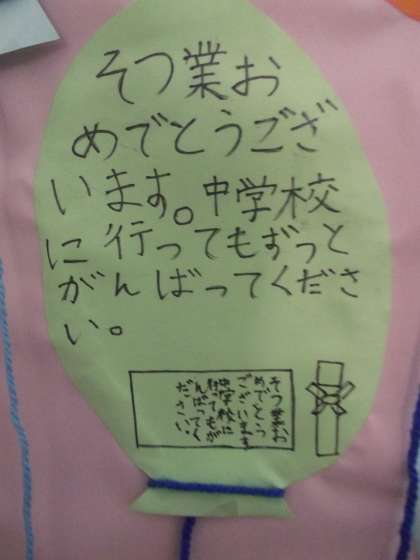 そつ業お
めでとうござ
います。中学校
に行ってもずっと
がんばってくださ
い。
そつ業お
めでとう
ございます
中学校に
行ってもが
んばってく
ださい。